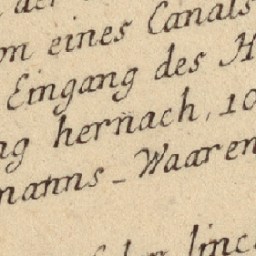 der
on eines Canals
Eingang des H
ng hernach, 10
manns-Waaren
linc